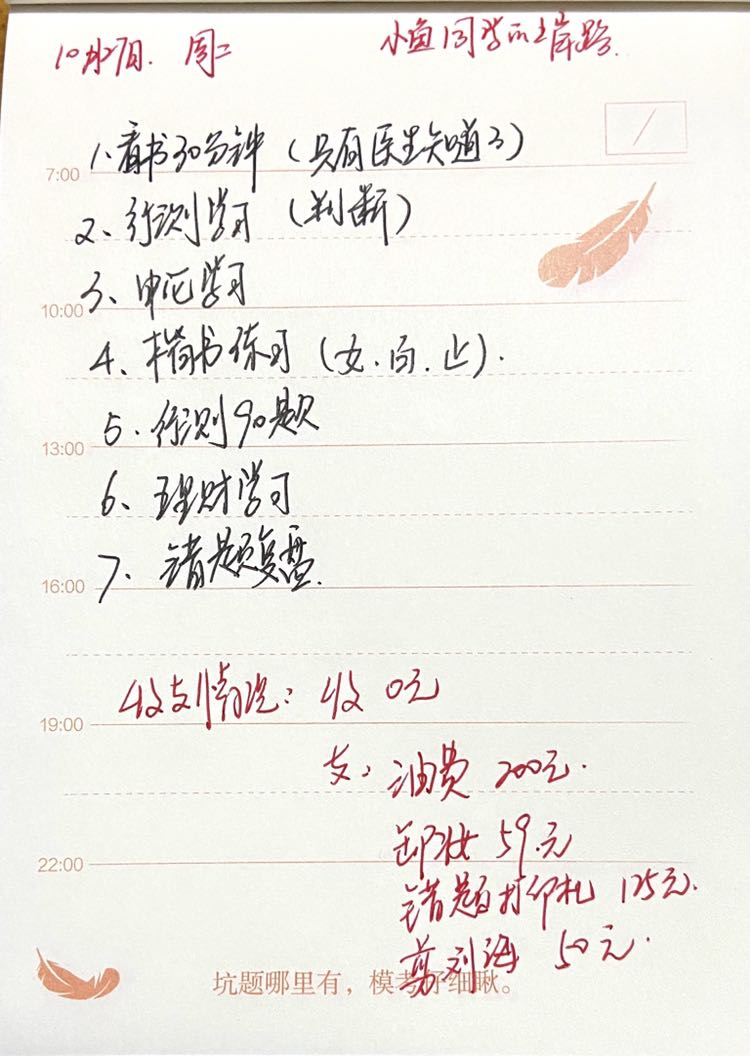 10月27日. 周二
小鱼同学的上岸路.
1、看书30分钟（只有医生知道3）
7:00
2、行测学习（判断）
3、申论学习
10:00
4、楷书练习（女.百.止）.
5.行测90题
13:00
6、理财学习
7、错题复盘.
16:00
收支情况：收 0元
19:00
支：油费 200元.
卸妆 59.元
22:00
错题打印机 125元.
剪刘海 50元.
坑题哪里有，模考仔细瞅。